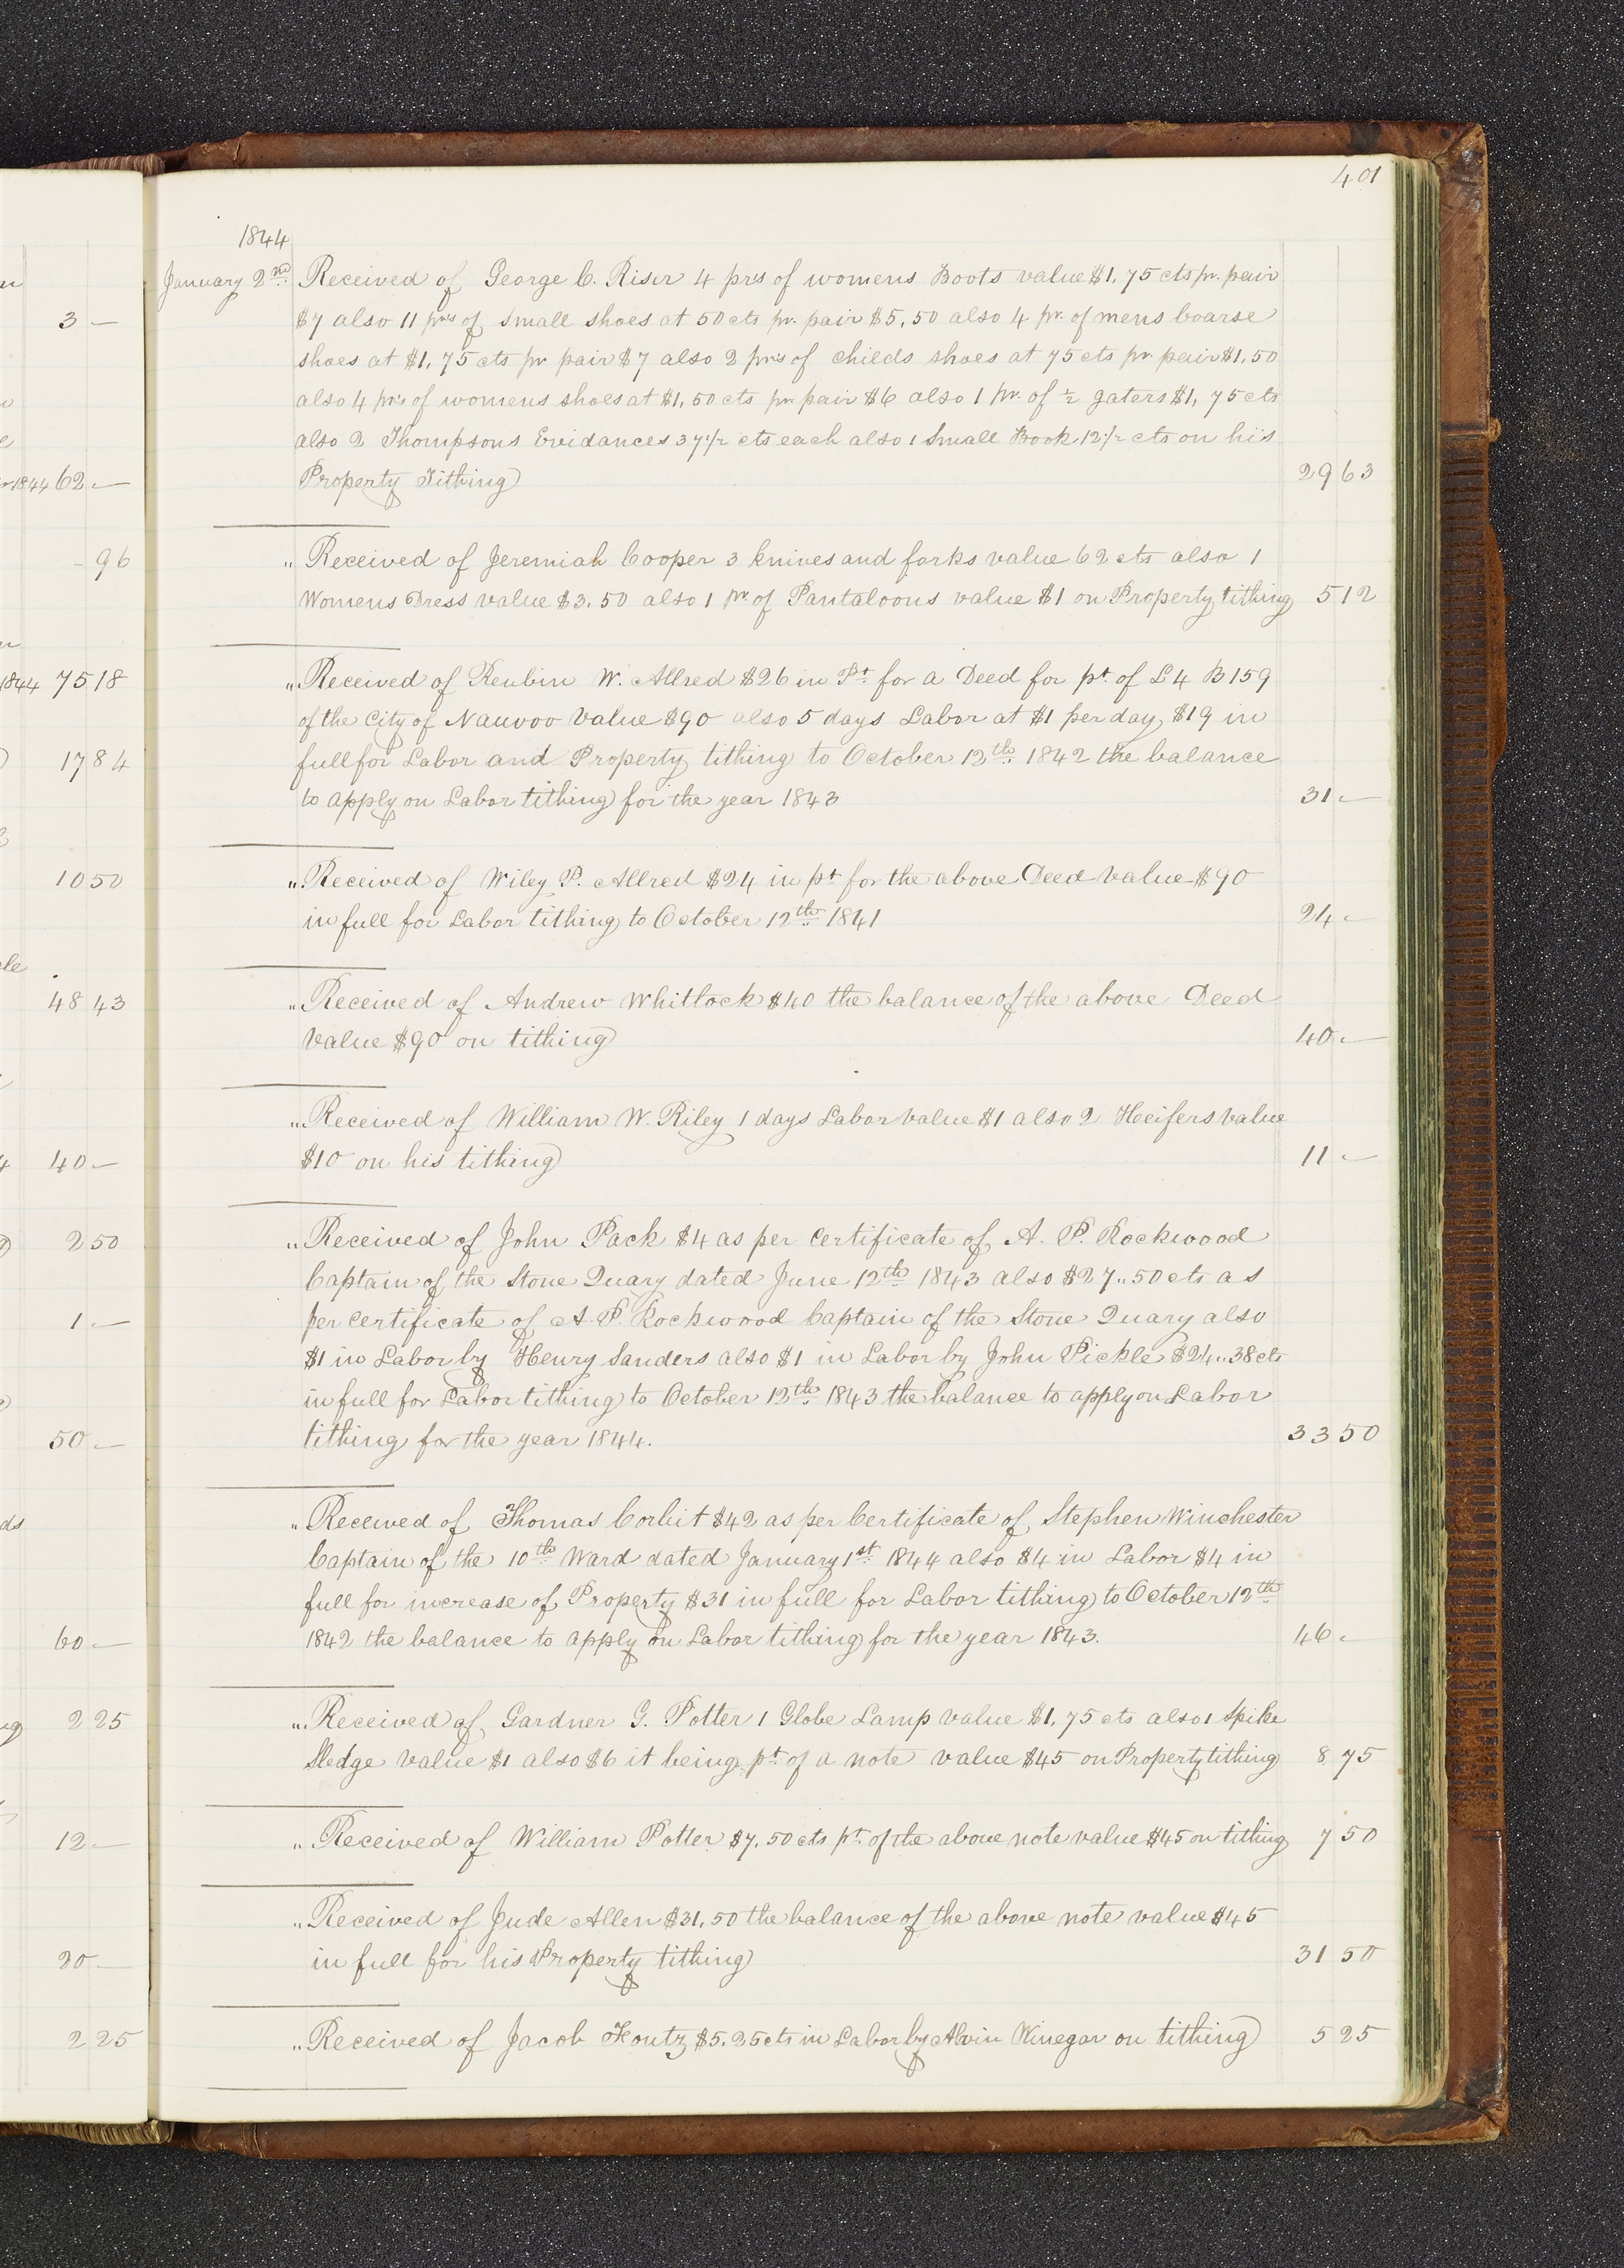 401
1844
January 2nd Received of George C. Riser 4 prs of womens Boots value $1,75 cts pr. pair
$7 also 11 prs of small shoes at 50 cts pr. pair $5,50 also 4 pr. of mens Coarse
shoes at $1,75 cts pr pair $7 also 2 prs of childs shoes at 75 cts pr pair $1,50
also 4 prs of womens shoes at $1,50 cts pr pair $6 also 1 pr. of ½ gaters $1,75 cts
also 2 Thompsons Evidances 37½ cts each also 1 Small Book 12½ cts on his
Property Tithing 29 63
" Received of Jeremiah Cooper 3 knives and forks value 62 cts also 1
Womens Dress value $3.50 also 1 pr of Pantaloons value $1 on Property tithing 5 12
" Received of Reubin W. Allred $26 in Pt for a Deed for pt. of L 4 B 159
of the City of Nauvoo Value $90 also 5 days Labor at $1 per day $19 in
full for Labor and Property tithing to October 12th 1842 the balance
to apply on Labor tithing for the year 1843 31 -
" Received of Wiley P. Allred $24 in pt for the above Deed Value $90
in full for Labor tithing to October 12th 1841 24 -
" Received of Andrew Whitlock $40 the balance of the above Deed
Value $90 on tithing 40 -
" Received of William W. Riley 1 days Labor value $1 also 2 Heifers value
$10 on his tithing 11 -
" Received of John Pack $4 as per Certificate of A. P. Rockwood
Captain of the Stone Quary dated June 12th 1843 also $27..50 cts as
per Certificate of A. P. Rockwood Captain of the Stone Quary also
$1 in Labor by Henry Sanders also $1 in Labor by John Pickle $24..38 cts
in full for Labor tithing to October 12th 1843 the balance to apply on Labor
tithing for the year 1844. 33 50
" Received of Thomas Corbit $42 as per Certificate of Stephen Winchester
Captain of the 10th Ward dated January 1st 1844 also $4 in Labor $4 in
full for increase of Property $31 in full for Labor tithing to October 12th
1842 the balance to apply on Labor tithing for the year 1843. 46 -
" Received of Gardner G. Potter 1 Globe Lamp value $1,75 cts also 1 Spike
Sledge value $1 also $6 it being pt of a note value $45 on Property tithing 8 75
" Received of William Potter $7,50 cts pt. of the above note value $45 on tithing 7 50
" Received of Jude Allen $31,50 the balance of the above note value $45
in full for his Property tithing 31 50
" Received of Jacob Foutz $5.25 cts in Labor by Alvin Winegar on tithing 5 25
3 -
1844 62 -
- 96
1844 75 18
17 84
10 50
48 43
40 -
2 50
1 -
50 -
60 -
2 25
12 -
20 -
2 25